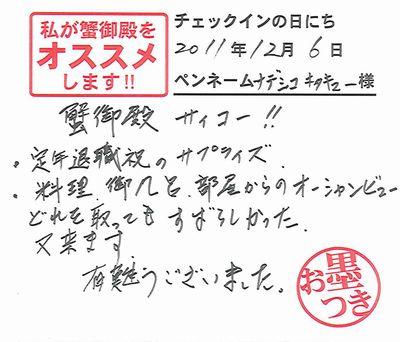 私が蟹御殿を
オススメ
します!!
チェックインの日にち
2011年12月6日
ペンネームナデシコキタキュー様
蟹御殿 サイコー!!
・定年退職祝のサプライズ.
・料理.御風呂.部屋からのオーシャンビュー
どれを取ってもすばらしかった.
又来ます.
有難うございました.
お墨つき